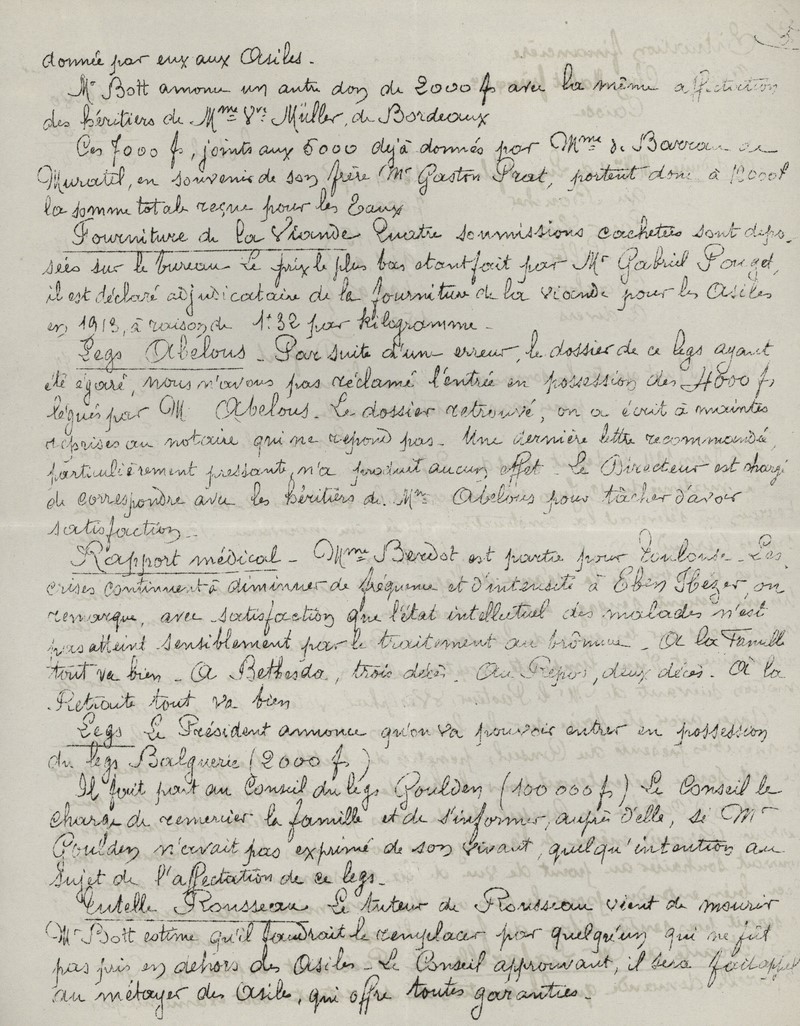 donnée par eux aux Asiles.
Mr Bott annonce un autre don de 2000 f avec la même affectation
des héritiers de Mme Vve Müller, de Bordeaux
Ces 7000 f, joints aux 5000 déjà donnés par Mme de Barrau de
Muratel, en souvenir de son frère Mr Gaston Prat, portent donc à 12000f
la somme totale reçue pour les Eaux
Fourniture de la Viande Quatre soumissions cachetées sont dépo-
sées sur le bureau Le prix le plus bas étant fait par Mr Gabriel Pouget,
il est déclaré adjudicataire de la fourniture de la viande pour les Asiles
en 1913, à raison de 1f32 par kilogramme.
Legs Abelous. Par suite d'un erreur, le dossier de ce legs ayant
été égaré, nous n'avons pas réclamé l'entrée en possession des 4000 f
légués par M Abelous. Le dossier retrouvé, on a écrit à maintes
reprises au notaire qui ne répond pas. Une dernière lettre recommandée,
particulièrement pressante, n'a produit aucun effet. Le Directeur est chargé
de correspondre avec les héritiers de Mr Abelous pour tâcher d'avoir
satisfaction.
Rapport médical. Mme Berdot est partie pour Toulouse. Les
crises continuent à diminuer de fréquence et d'intensité à Eben Hezer, on
remarque, avec satisfaction que l'état intellectuel des malades n'est
pas atteint sensiblement par le traitement au brômure. A la Famille
tout va bien. A Bethesda, trois décès. Au Repos, deux décès. A la
Retraite tout va bien
Legs Le Président annonce qu'on va pouvoir entrer en possession
du legs Balguerie (2000 f)
Il fait part au Conseil du legs Goulden (100 000 f) Le Conseil le
charge de remercier la famille et de s'informer, auprès d'elle, si Mr
Goulden n'avait pas exprimé de son vivant, quelqu'intention au
sujet de l'affectation de ce legs.
Tutelle Rousseau Le tuteur de Rousseau vient de mourir
Mr Bott estime qu'il faudrait le remplacer par quelqu'un qui ne fût
pas pris en dehors des Asiles. Le Conseil approuvant, il sera fait appel
au métayer des Asiles, qui offre toutes garanties.